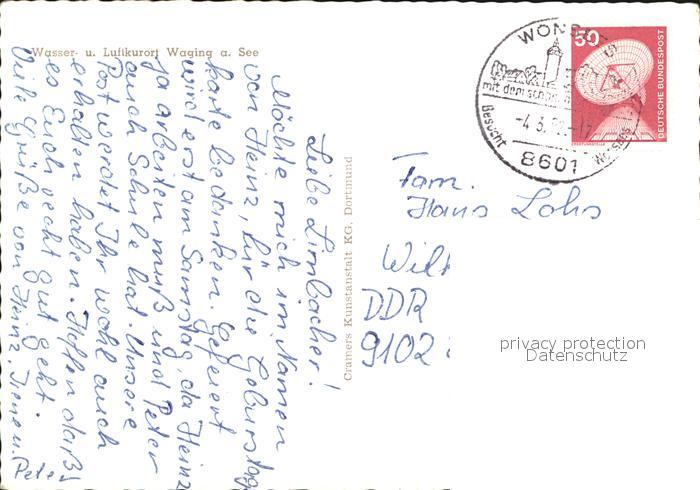 Wasser- u. Luftkurort Waging a. See
Liebe Limbacher!
Möchte mich im Namen
von Heinz, für die Geburstags
karte bedanken. Gefeiert
wird erst am Samstag, da Heinz
ja arbeiten muß und Peter
auch Schule hat. Unsere
Post werdet Ihr wohl auch
erhalten haben. Hoffen daß
es Euch recht gut geht.
Viele Grüße von Heinz, Irene u.
Peter
Cramers Kunstanstalt KG, Dortmund
WONSEES
mit dem
Besucht
-4.3.
8601
50
DEUTSCHE BUNDESPOST
Fam.
Hans Lohs
DDR
9102
privacy protection
Datenschutz